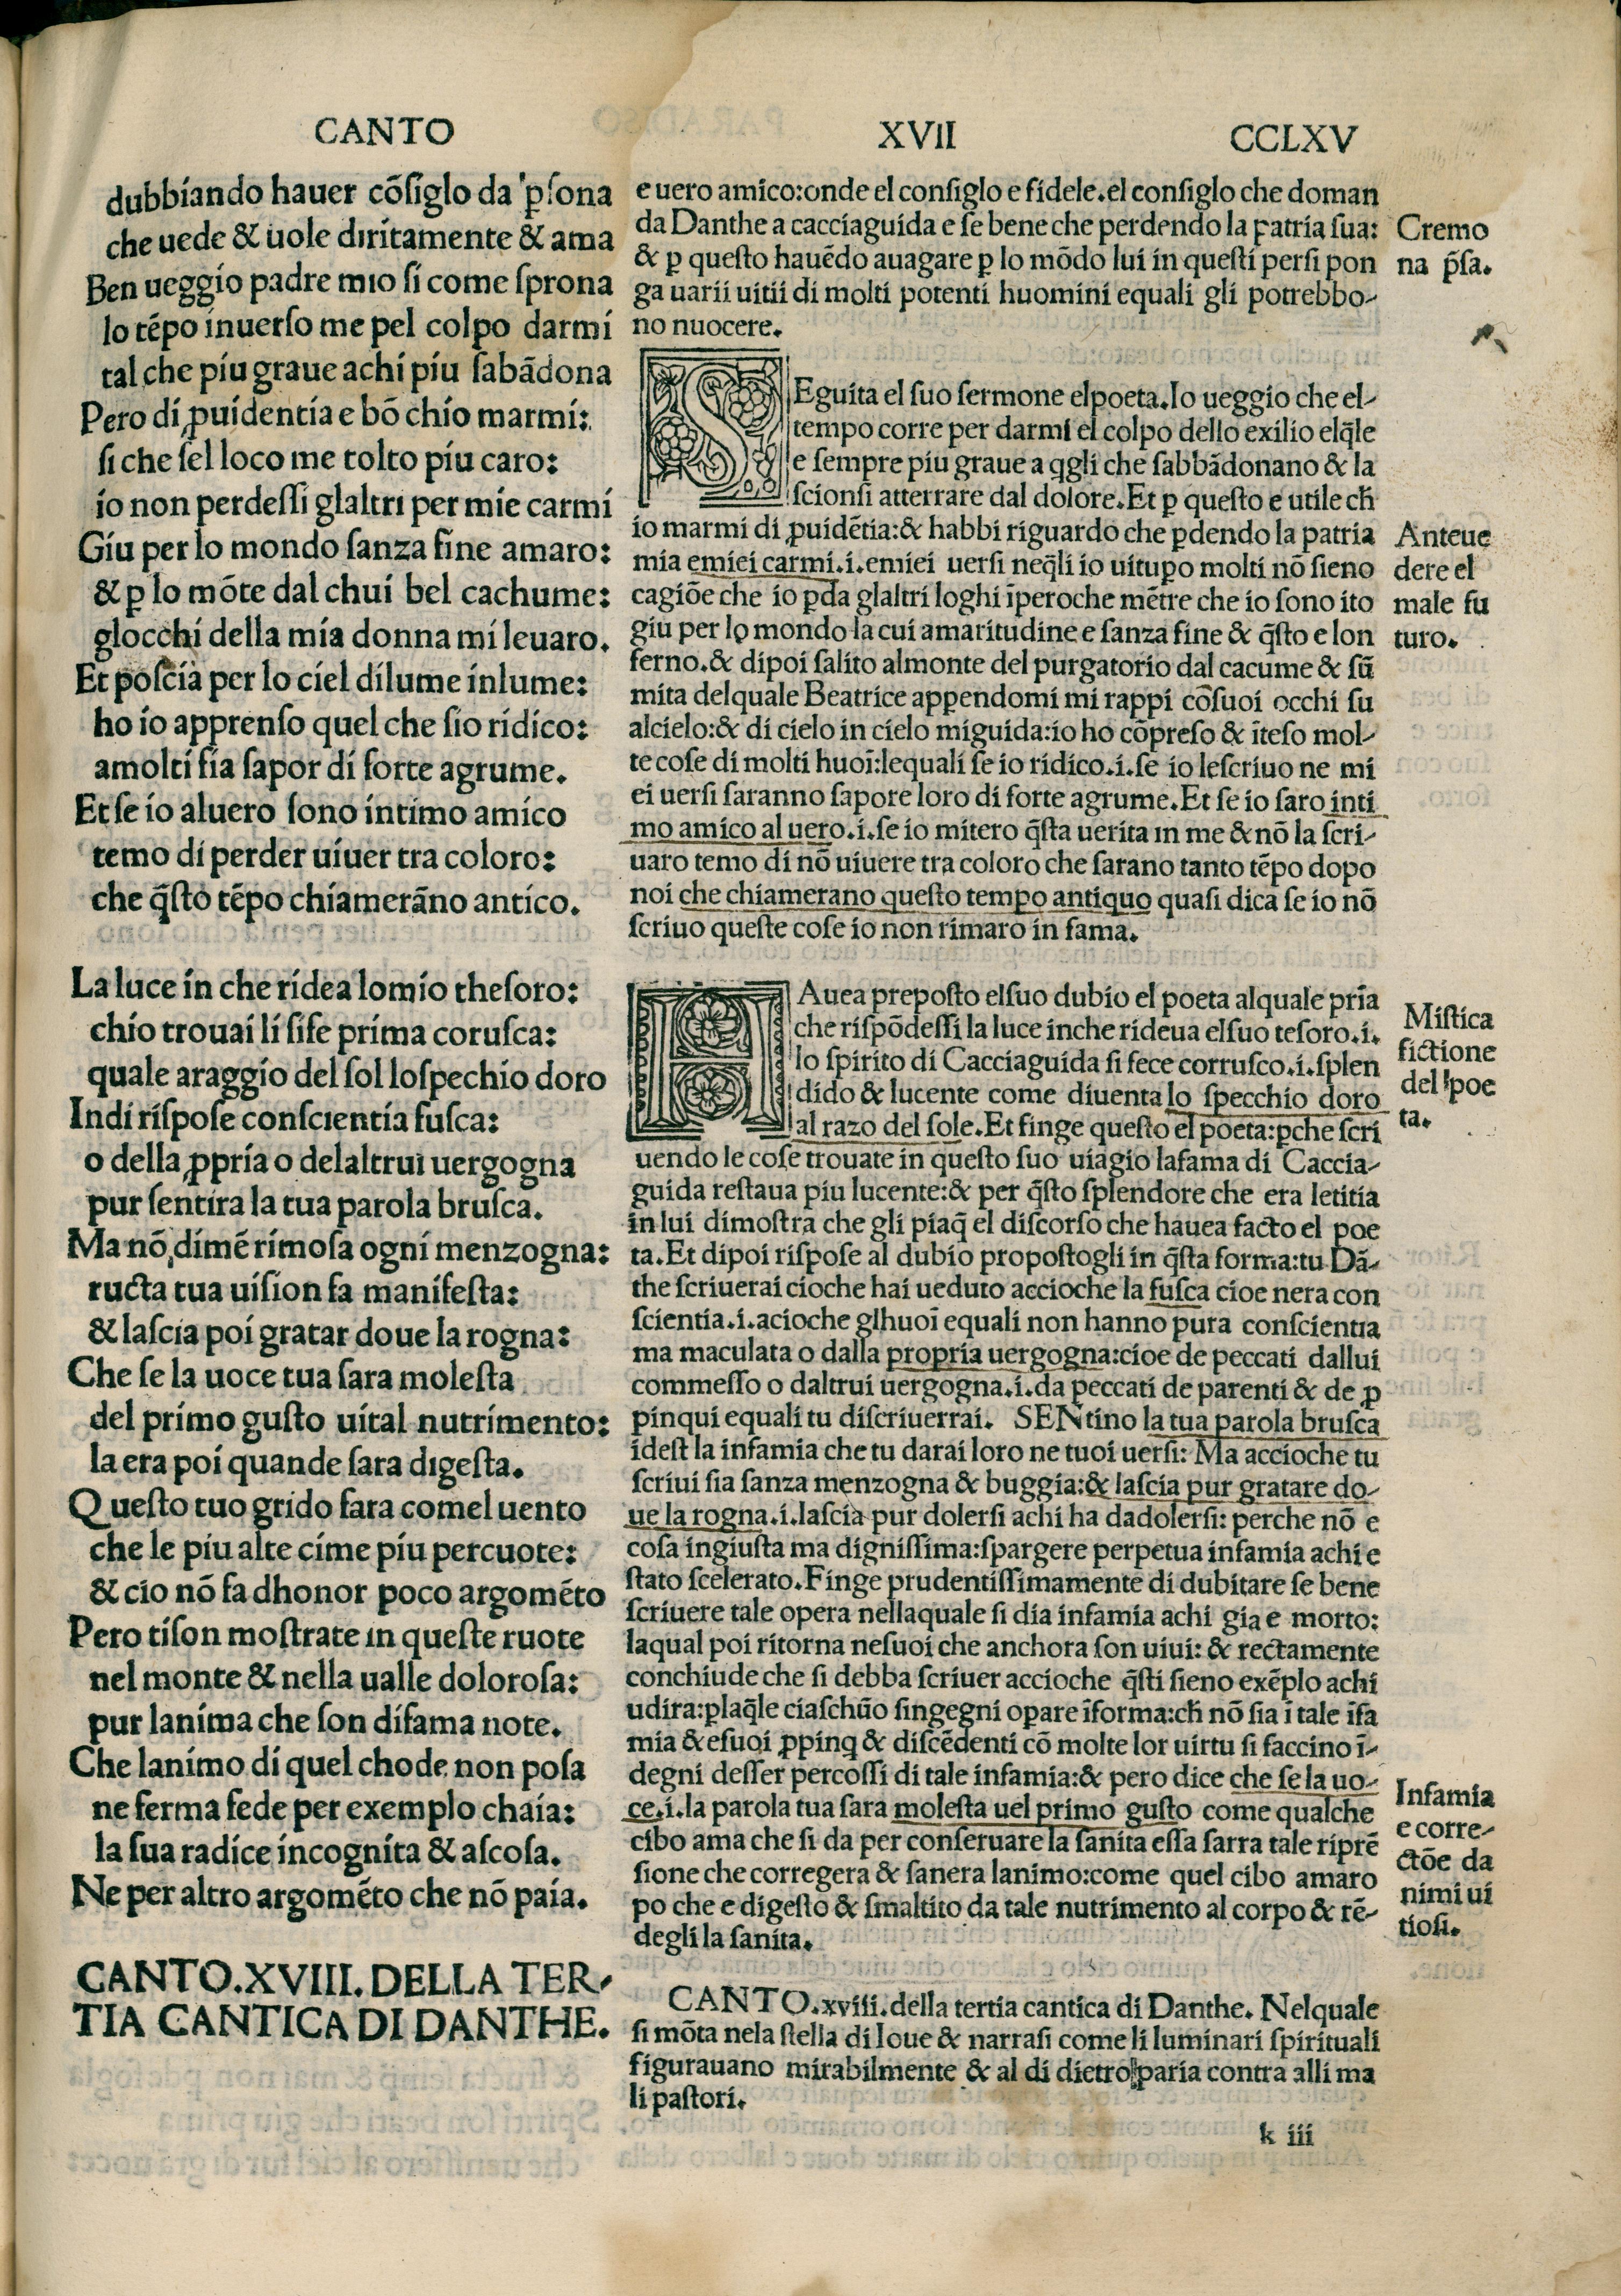 CANTO XVII CCLXV
dubbiando hauer cõſiglo da ꝑſona
che uede & uole diritamente & ama
Ben ueggio padre mio ſi come ſprona
lo tẽpo inuerſo me pel colpo darmi
tal che piu graue achi piu ſabãdona
Pero di ꝓuidentia e bõ chio marmi:
ſi che ſel loco me tolto piu caro:
io non perdeſſi glaltri per mie carmi
Giu per lo mondo ſanza fine amaro:
& ꝑ lo mõte dal chui bel cachume:
glocchi della mia donna mi leuaro.
Et poſcia per lo ciel dilume inlume:
ho io apprenſo quel che ſio ridico:
amolti fia ſapor di forte agrume.
Et ſe io aluero ſono intimo amico
temo di perder uiuer tra coloro:
che q̃ſto tẽpo chiamerãno antico.
La luce in che ridea lomio theſoro:
chio trouai li ſife prima coruſca:
quale araggio del ſol loſpechio doro
Indi riſpoſe conſcientia fuſca:
o della ꝓpria o delaltrui uergogna
pur ſentira la tua parola bruſca.
Ma nõ dimẽ rimoſa ogni menzogna:
tucta tua uiſion fa manifeſta:
& laſcia poi gratar doue la rogna:
Che ſe la uoce tua ſara moleſta
del primo guſto uital nutrimento:
la era poi quande ſara digeſta.
Queſto tuo grido fara comel uento
che le piu alte cime piu percuote:
& cio nõ fa dhonor poco argomẽto
Pero tiſon moſtrate in queſte ruote
nel monte & nella ualle doloroſa:
pur lanima che ſon difama note.
Che lanimo di quel chode non poſa
ne ferma fede per exemplo chaia:
la ſua radice incognita & aſcoſa.
Ne per altro argomẽto che nõ paia.
CANTO.XVIII.DELLA TER-
TIA CANTICA DI DANTHE.
e uero amico:onde el conſiglo e fidele.el conſiglo che doman
da Danthe a cacciaguida e ſe bene che perdendo la patria ſua:
& ꝑ queſto hauẽdo auagare ꝑ lo mõdo lui in queſti perſi pon
ga uarii uitii di molti potenti huomini equali gli potrebbo-
no nuocere.
SEguita el ſuo ſermone elpoeta.Io ueggio che el-
tempo corre per darmi el colpo dello exilio elq̃le
e ſempre piu graue a q̃gli che ſabbãdonano & la
ſcionſi atterrare dal dolore.Et ꝑ queſto e utile ch̃
io marmi di ꝓuidẽtia:& habbi riguardo che ꝑdendo la patria
mia emiei carmi.i.emiei uerſi neq̃li io uituꝑo molti nõ ſieno
cagiõe che io ꝑda glaltri loghi ĩperoche mẽtre che io ſono ito
giu per lo mondo la cui amaritudine e ſanza fine & q̃ſto e lon
ferno.& dipoi ſalito almonte del purgatorio dal cacume & ſũ
mita delquale Beatrice appendomi mi rappi cõſuoi occhi ſu
alcielo:& di cielo in cielo miguida:io ho cõpreſo & ĩteſo mol-
te coſe di molti huoĩ:lequali ſe io ridico.i.ſe io leſcriuo ne mi
ei uerſi ſaranno ſapore loro di forte agrume.Et ſe io ſaro inti
mo amico al uero.i.ſe io mitero q̃ſta uerita in me & nõ la ſcri-
uaro temo di nõ uiuere tra coloro che ſarano tanto tẽpo dopo
noi che chiamerano queſto tempo antiquo quaſi dica ſe io nõ
ſcriuo queſte coſe io non rimaro in fama.
HAuea prepoſto elſuo dubio el poeta alquale pria
che riſpõdeſſi la luce inche rideua elſuo teſoro.i.
lo ſpirito di Cacciaguida ſi fece corruſco.i.ſplen
dido & lucente come diuenta lo ſpecchio doro
al razo del ſole.Et finge queſto el poeta:ꝑche ſcri
uendo le coſe trouate in queſto ſuo uiagio lafama di Caccia-
guida reſtaua piu lucente:& per q̃ſto ſplendore che era letitia
in lui dimoſtra che gli piaq̃ el diſcorſo che hauea facto el poe
ta.Et dipoi riſpoſe al dubio propoſtogli in q̃ſta forma:tu Dã-
the ſcriuerai cioche hai ueduto accioche la fuſca cioe nera con
ſcientia.i.acioche glhuoĩ equali non hanno pura conſcientia
ma maculata o dalla propria uergogna:cioe de peccati dallui
commeſſo o daltrui uergogna.i.da peccati de parenti & de ꝓ
pinqui equali tu diſcriuerrai. SENtino la tua parola bruſca
ideſt la infamia che tu darai loro ne tuoi uerſi: Ma accioche tu
ſcriui ſia ſanza menzogna & buggia:& laſcia pur gratare do-
ue la rogna.i.laſcia pur dolerſi achi ha dadolerſi: perche nõ e
coſa ingiuſta ma digniſſima:ſpargere perpetua infamia achi e
ſtato ſcelerato.Finge prudentiſſimamente di dubitare ſe bene
ſcriuere tale opera nellaquale ſi dia infamia achi gia e morto:
laqual poi ritorna neſuoi che anchora ſon uiui: & rectamente
conchiude che ſi debba ſcriuer accioche q̃ſti ſieno exẽplo achi
udira:ꝑlaq̃le ciaſchũo ſingegni oꝑare ĩforma:ch̃ nõ ſia ĩ tale ĩfa
mia & eſuoi ꝓpinq̃ & diſcẽdenti cõ molte lor uirtu ſi faccino ĩ-
degni deſſer percoſſi di tale infamia:& pero dice che ſe la uo-
ce.i.la parola tua ſara moleſta uel primo guſto come qualche
cibo ama che ſi da per conſeruare la ſanita eſſa ſarra tale riprẽ
ſione che corregera & ſanera lanimo:come quel cibo amaro
po che e digeſto & ſmaltito da tale nutrimento al corpo & rẽ-
degli la ſanita.
CANTO.xviii.della tertia cantica di Danthe. Nelquale
ſi mõta nela ſtella di Ioue & narraſi come li luminari ſpirituali
figurauano mirabilmente & al di dietro paria contra alli ma
li paſtori.
k iii
Cremo
na p̃ſa.
Anteue
dere el
male fu
turo.
Miſtica
fictione
del poe
ta.
Infamia
e corre-
ctõe da
nimi ui
tioſi.